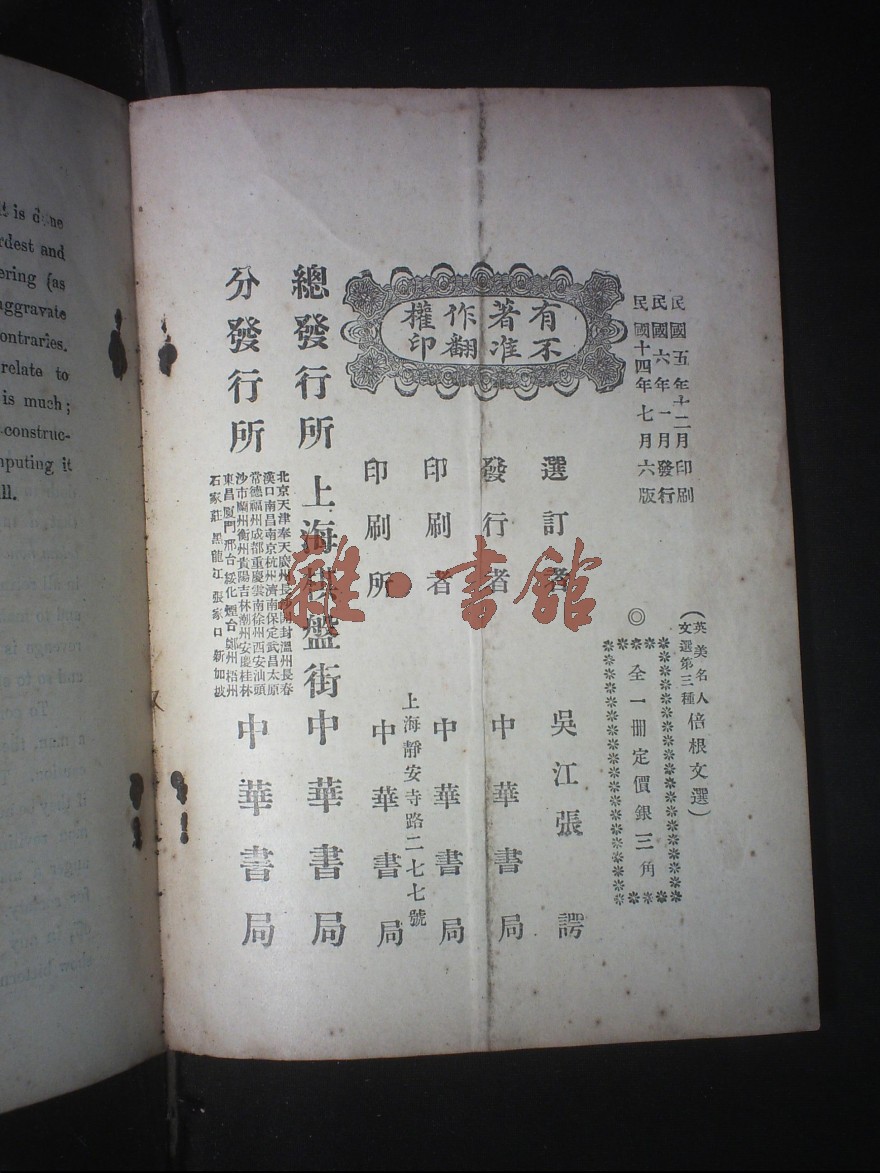 t is done
rdest and
ering (as
aggravate
ontraries.
relate to
is much;
-construc-
mputing it
ll.
民國五年十二月印刷
民國六年一月發行
民國十四年七月六版
(英美名人文選第三種 倍根文選)
◎全一冊定價銀三角
有不
著准
作翻
權印
選訂者 吳江張諤
發行者 中華書局
印刷者 中華書局
上海靜安寺路二七七號
印刷所 中華書局
總發行所 上海棋盤街 中華書局
分發行所 中華書局
北京天津奉天廣州長沙開封溫州長春
漢口南昌南京杭州濟南保定武昌太原
常德福州成都重慶雲南徐州西安汕頭
沙市蘭州衡州貴陽吉林潮州安慶桂林
東昌廈門邢台綏化煙台鄭州梧州
石家莊 黑龍江 張家口 新加坡
雜·書館